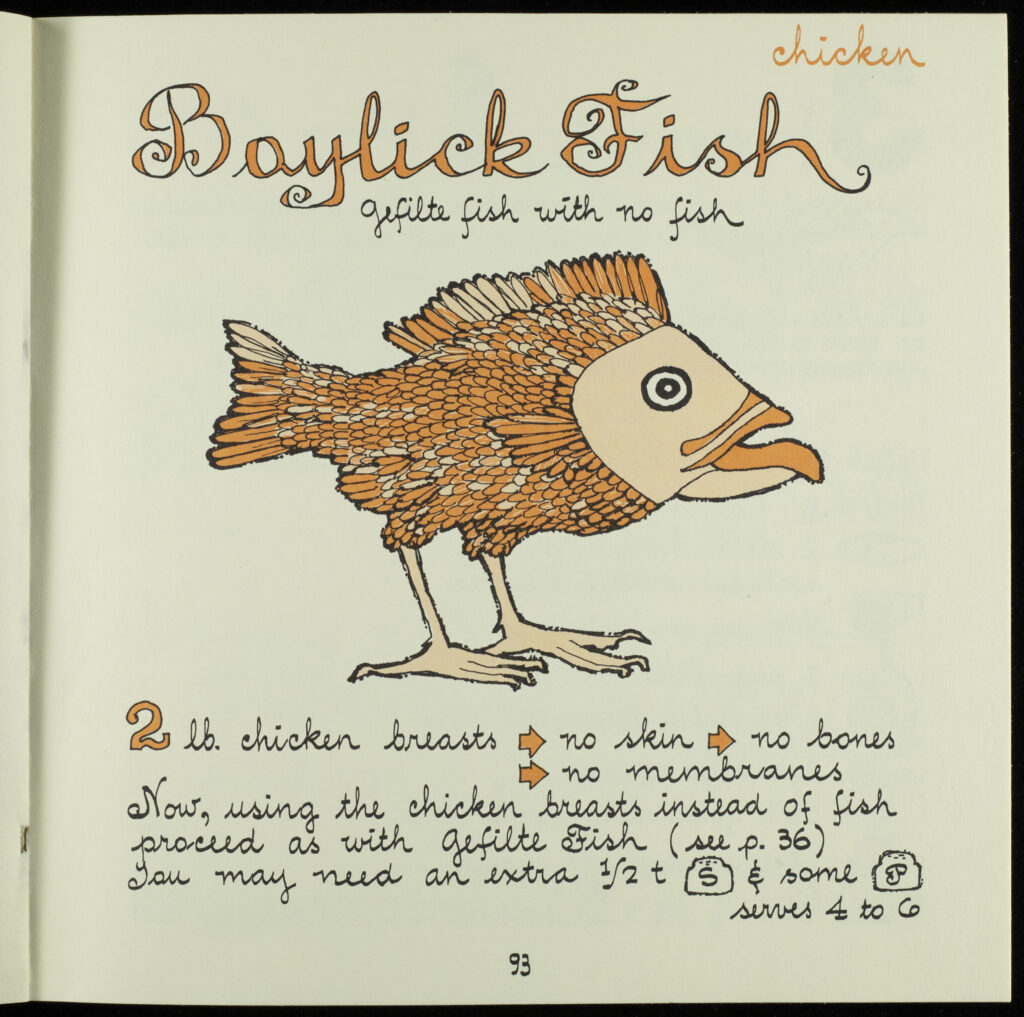 chicken
Baylick Fish
Gefilte fish with no fish
2 lb. chicken breasts ➡ no skin ➡ no bones
➡ no membranes
Now, using the chicken breasts instead of fish
proceed as with Gefilte Fish (see p. 36)
You may need an extra 1/2 t S & some P
serves 4 to 6
93